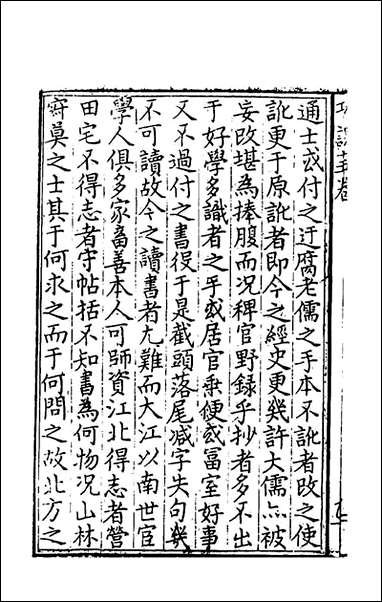 通士或付之迂腐老儒之手本不訛者改之使
訛更于原訛者即今之經史更幾許大儒亦被
妄改堪為捧腹而况稗官野録乎抄者多不出
于好學多識者之手或居官乘便或冨室好事
又不過付之書役于是截頭落尾减字失句幾
不可讀故今之讀書者尤難而大江以南世宦
學人俱多家畜善本人可師資江北得志者營
田宅不得志者守帖括不知書為何物况山林
窮莫之士其于何求之而于何問之故北方之